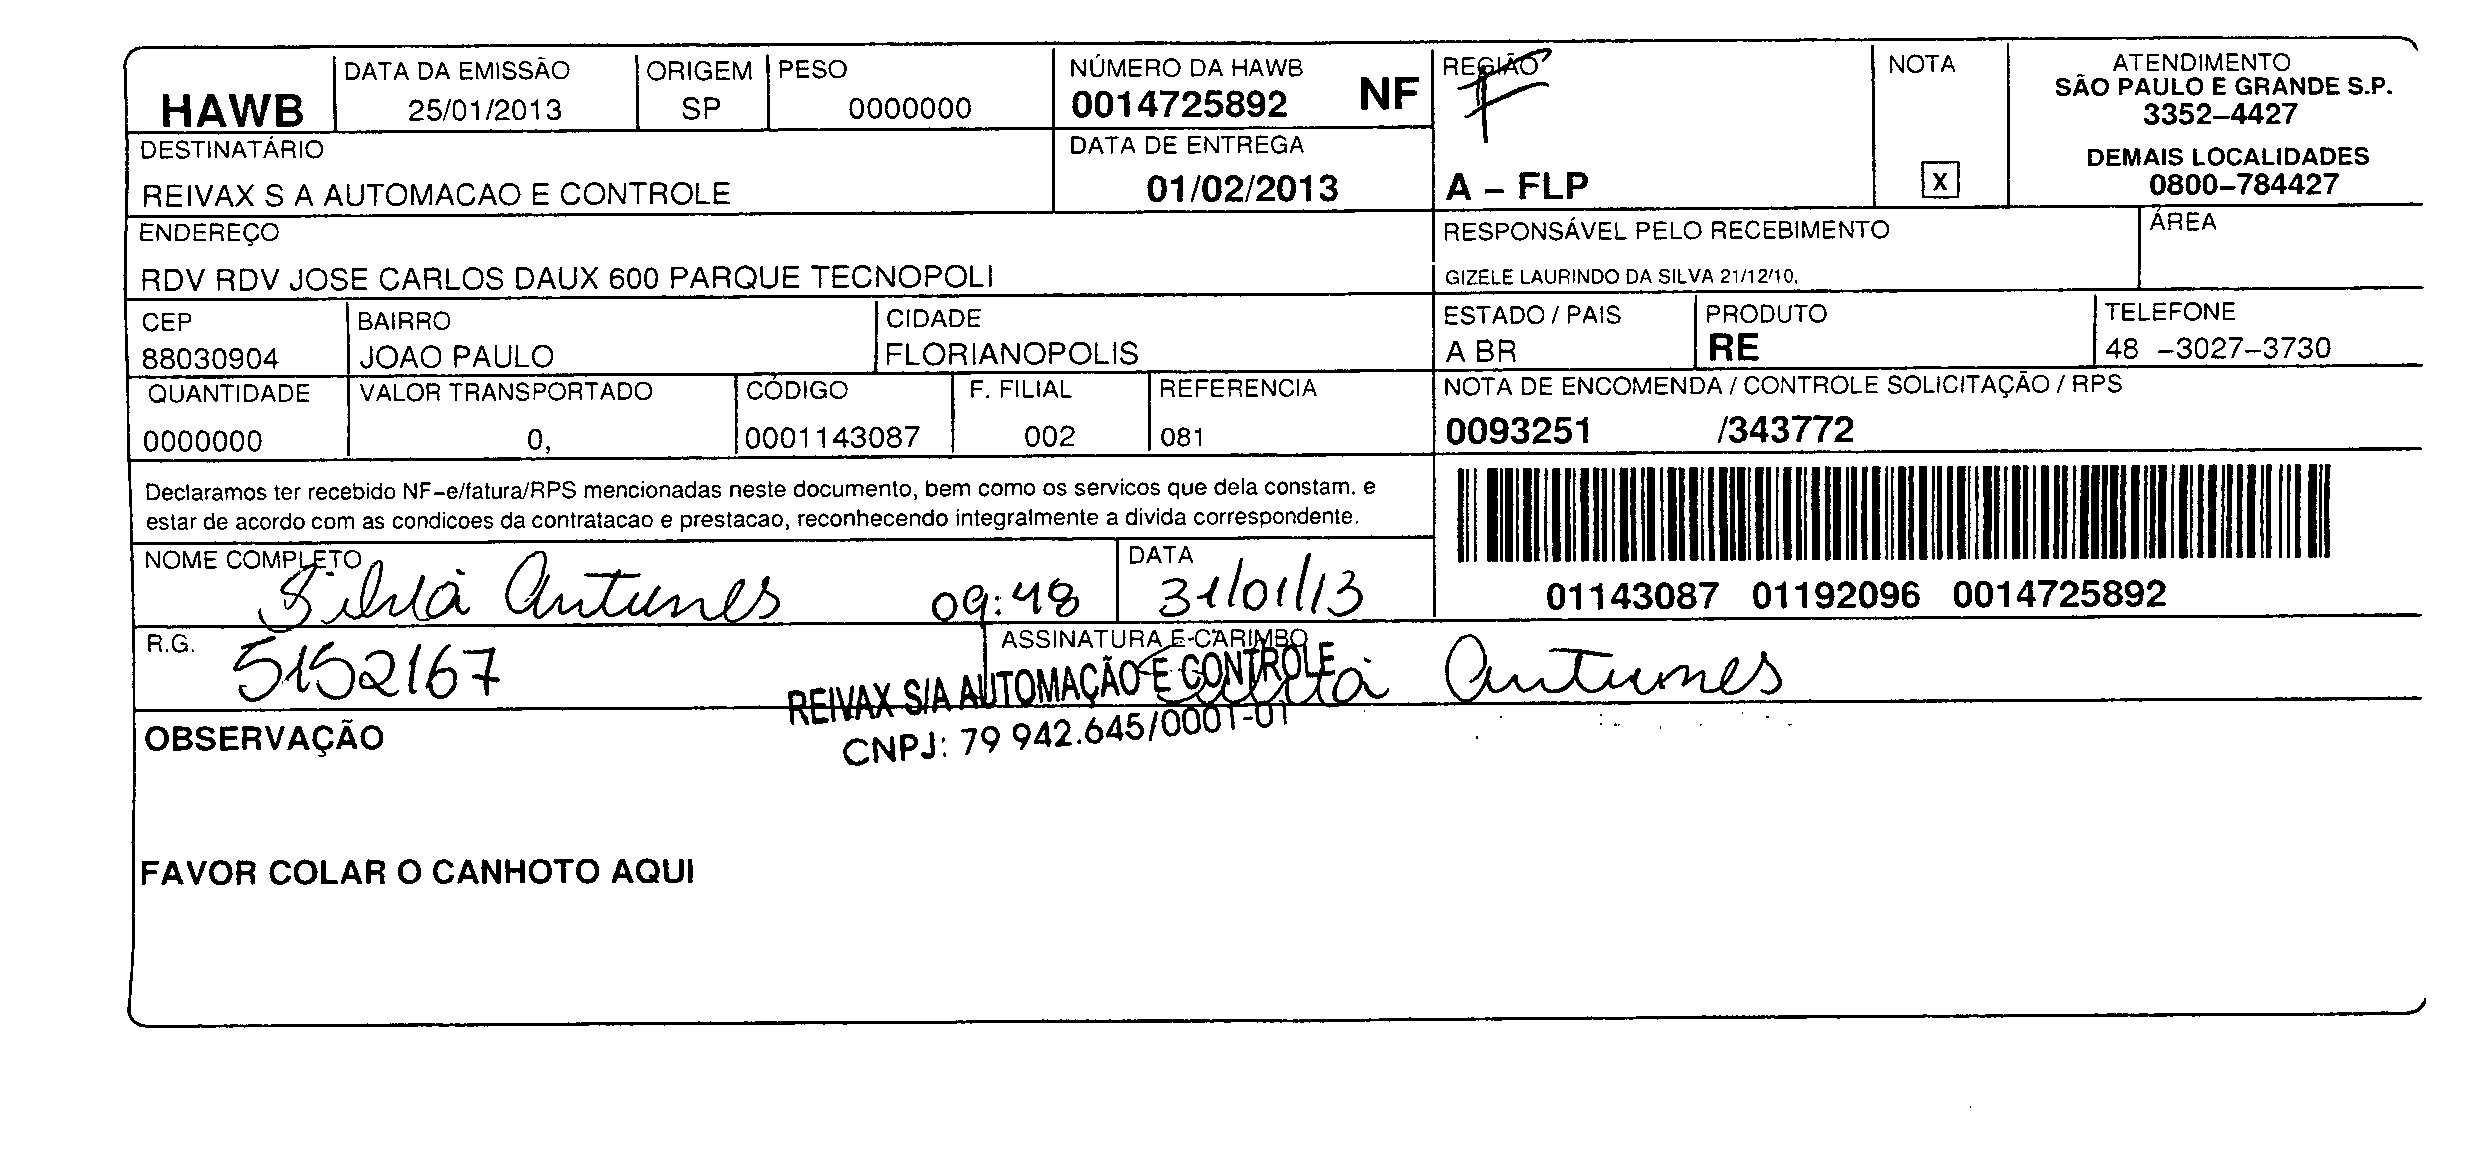 HAWB
DATA DA EMISSÃO
25/01/2013
ORIGEM
SP
PESO
0000000
NÚMERO DA HAWB
0014725892 NF
REGIÃO
A – FLP
NOTA
X
ATENDIMENTO
SÃO PAULO E GRANDE S.P.
3352–4427
DEMAIS LOCALIDADES
0800–784427
DESTINATÁRIO
REIVAX S A AUTOMACAO E CONTROLE
DATA DE ENTREGA
01/02/2013
ENDEREÇO
RDV RDV JOSE CARLOS DAUX 600 PARQUE TECNOPOLI
RESPONSÁVEL PELO RECEBIMENTO
GIZELE LAURINDO DA SILVA 21/12/10,
ÁREA
CEP
88030904
BAIRRO
JOAO PAULO
CIDADE
FLORIANOPOLIS
ESTADO / PAIS
A BR
PRODUTO
RE
TELEFONE
48 –3027–3730
QUANTIDADE
0000000
VALOR TRANSPORTADO
0,
CÓDIGO
0001143087
F. FILIAL
002
REFERENCIA
081
NOTA DE ENCOMENDA / CONTROLE SOLICITAÇÃO / RPS
0093251 /343772
Declaramos ter recebido NF–e/fatura/RPS mencionadas neste documento, bem como os servicos que dela constam. e
estar de acordo com as condicoes da contratacao e prestacao, reconhecendo integralmente a divida correspondente.
01143087 01192096 0014725892
NOME COMPLETO
Silvia Antunes 09:48
DATA
31/01/13
R.G.
5152167
ASSINATURA E CARIMBO
REIVAX S/A AUTOMAÇÃO E CONTROLE
CNPJ: 79 942.645/0001-01
Antunes
OBSERVAÇÃO
FAVOR COLAR O CANHOTO AQUI